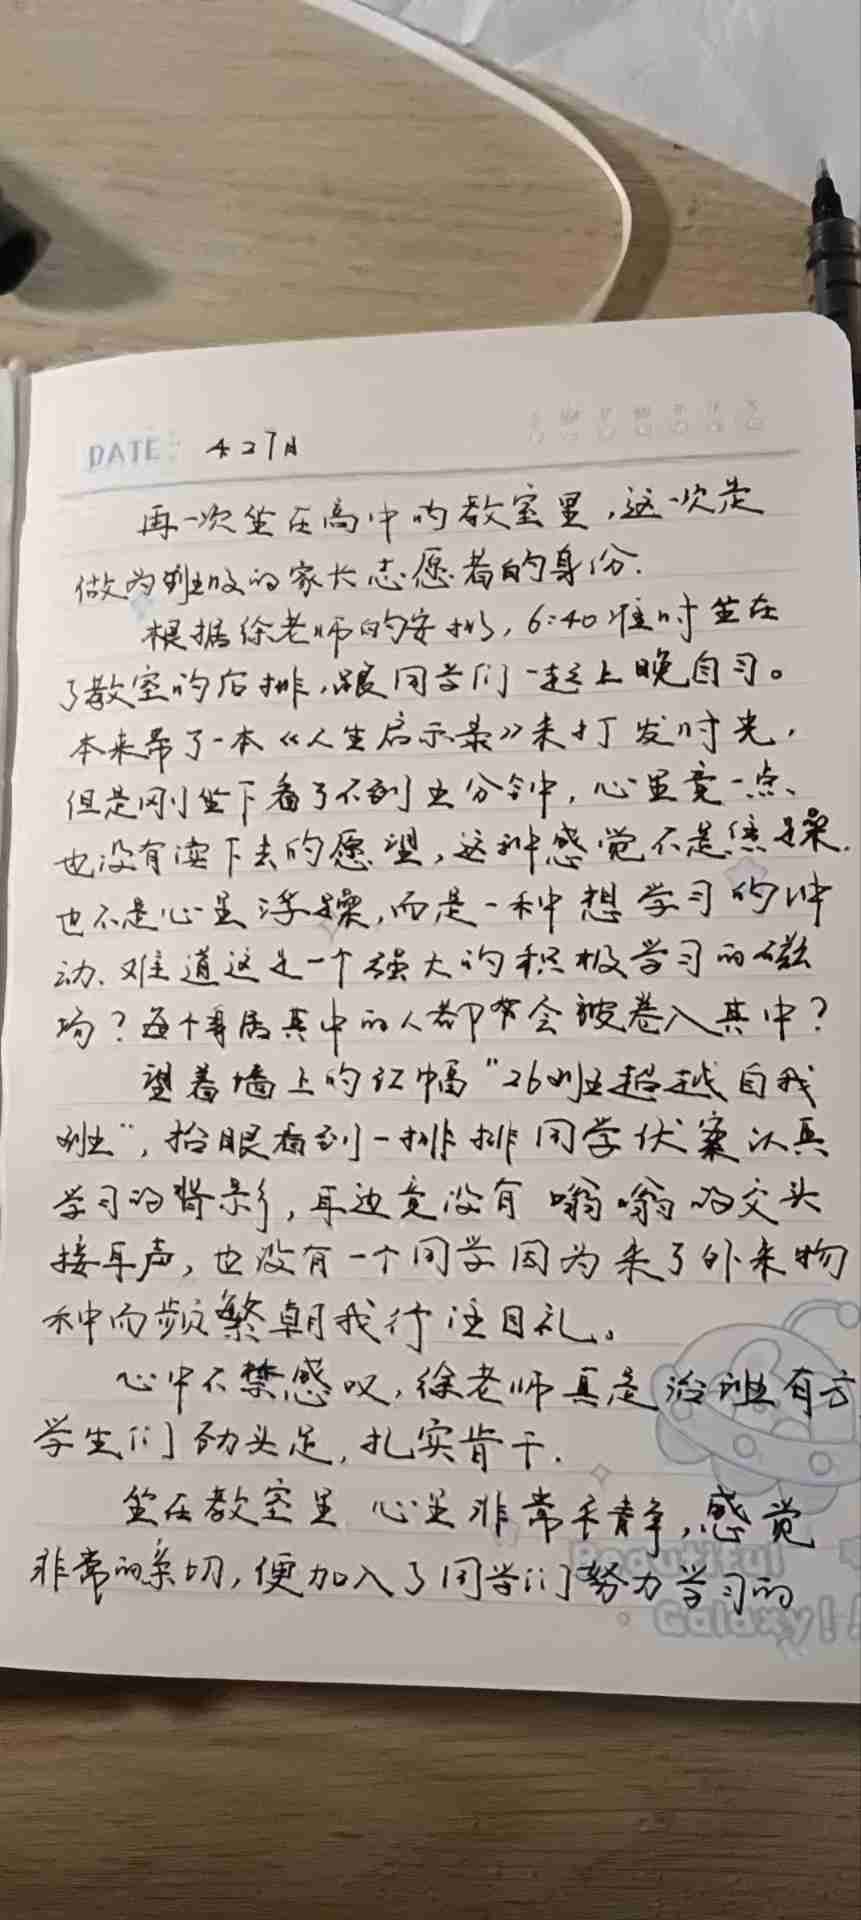 DATE: 4 27日
再一次坐在高中的教室里,这一次是
做为班级的家长志愿者的身份.
根据徐老师的安排,6:40准时坐在
了教室的后排,跟同学们一起上晚自习。
本来带了一本《人生启示录》来打发时光,
但是刚坐下看了不到五分钟,心里竟一点
也没有读下去的愿望,这种感觉不是焦躁.
也不是心里浮躁,而是一种想学习的冲
动、难道这是一个强大的积极学习的磁
场?每个身居其中的人都会被卷入其中?
望着墙上的红幅"26班超越自我
班",抬眼看到一排排同学伏案认真
学习的背影,耳边竟没有嗡嗡的交头
接耳声,也没有一个同学因为来了外来物
种而频繁朝我行注目礼。
心中不禁感叹,徐老师真是治班有方
学生们劲头足,扎实肯干.
坐在教室里 心里非常平静,感觉
非常的亲切,便加入了同学们努力学习的
Beautiful
Galaxy!!